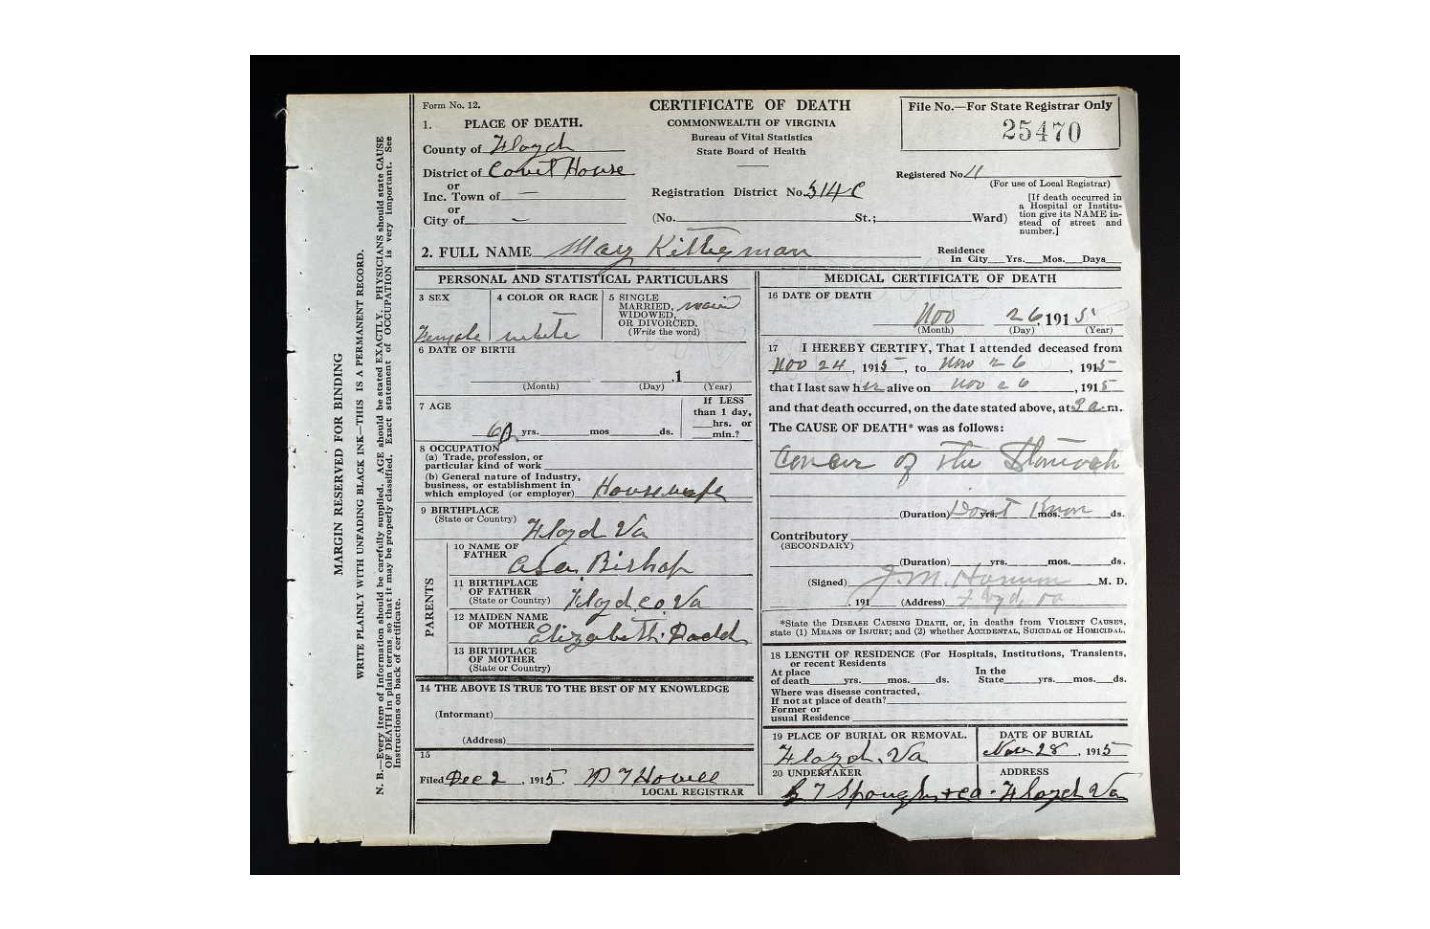 Form No. 12.
CERTIFICATE OF DEATH
COMMONWEALTH OF VIRGINIA
Bureau of Vital Statistics
State Board of Health
File No.—For State Registrar Only
25470
1. PLACE OF DEATH.
County of Floyd
District of Court House
or
Inc. Town of —
or
City of —
Registration District No. 314C
Registered No. 11
(For use of Local Registrar)
(No. St.; Ward)
[If death occurred in
a Hospital or Institu-
tion give its NAME in-
stead of street and
number.]
2. FULL NAME Mary Kitterman
Residence
In City Yrs. Mos. Days
PERSONAL AND STATISTICAL PARTICULARS
3 SEX
Female
4 COLOR OR RACE
white
5 SINGLE
MARRIED,
WIDOWED,
OR DIVORCED.
(Write the word)
6 DATE OF BIRTH
.1
(Month) (Day) (Year)
7 AGE
60 yrs. mos ds.
If LESS
than 1 day,
hrs. or
min.?
8 OCCUPATION
(a) Trade, profession, or
particular kind of work
(b) General nature of Industry,
business, or establishment in
which employed (or employer) Housewife
9 BIRTHPLACE
(State or Country) Floyd Va
PARENTS
10 NAME OF
FATHER Asa Bishop
11 BIRTHPLACE
OF FATHER
(State or Country) Floyd co Va
12 MAIDEN NAME
OF MOTHER Elizabeth Dodd
13 BIRTHPLACE
OF MOTHER
(State or Country)
14 THE ABOVE IS TRUE TO THE BEST OF MY KNOWLEDGE
(Informant)
(Address)
15
Filed Dec 2, 1915. Howell
LOCAL REGISTRAR
MEDICAL CERTIFICATE OF DEATH
16 DATE OF DEATH
Nov 26, 1915
(Month) (Day) (Year)
17 I HEREBY CERTIFY, That I attended deceased from
Nov 24, 1915, to Nov 26, 1915
that I last saw her alive on Nov 26, 1915
and that death occurred, on the date stated above, at a.m.
The CAUSE OF DEATH* was as follows:
Cancer of the Stomach
(Duration) Dont Know yrs. mos. ds.
Contributory
(SECONDARY)
(Duration) yrs. mos. ds.
(Signed) J.M. M. D.
, 191 (Address) Floyd, Va
*State the DISEASE CAUSING DEATH, or, in deaths from VIOLENT CAUSES,
state (1) MEANS OF INJURY; and (2) whether ACCIDENTAL, SUICIDAL or HOMICIDAL.
18 LENGTH OF RESIDENCE (For Hospitals, Institutions, Transients,
or recent Residents
At place In the
of death yrs. mos. ds. State yrs. mos. ds.
Where was disease contracted,
If not at place of death?
Former or
usual Residence
19 PLACE OF BURIAL OR REMOVAL.
Floyd, Va
DATE OF BURIAL
Nov 28, 1915
20 UNDERTAKER
ADDRESS
Floyd Va
MARGIN RESERVED FOR BINDING
WRITE PLAINLY WITH UNFADING BLACK INK—THIS IS A PERMANENT RECORD.
N. B.—Every item of information should be carefully supplied. AGE should be stated EXACTLY. PHYSICIANS should state CAUSE
OF DEATH in plain terms, so that it may be properly classified. Exact statement of OCCUPATION is very important. See
Instructions on back of certificate.